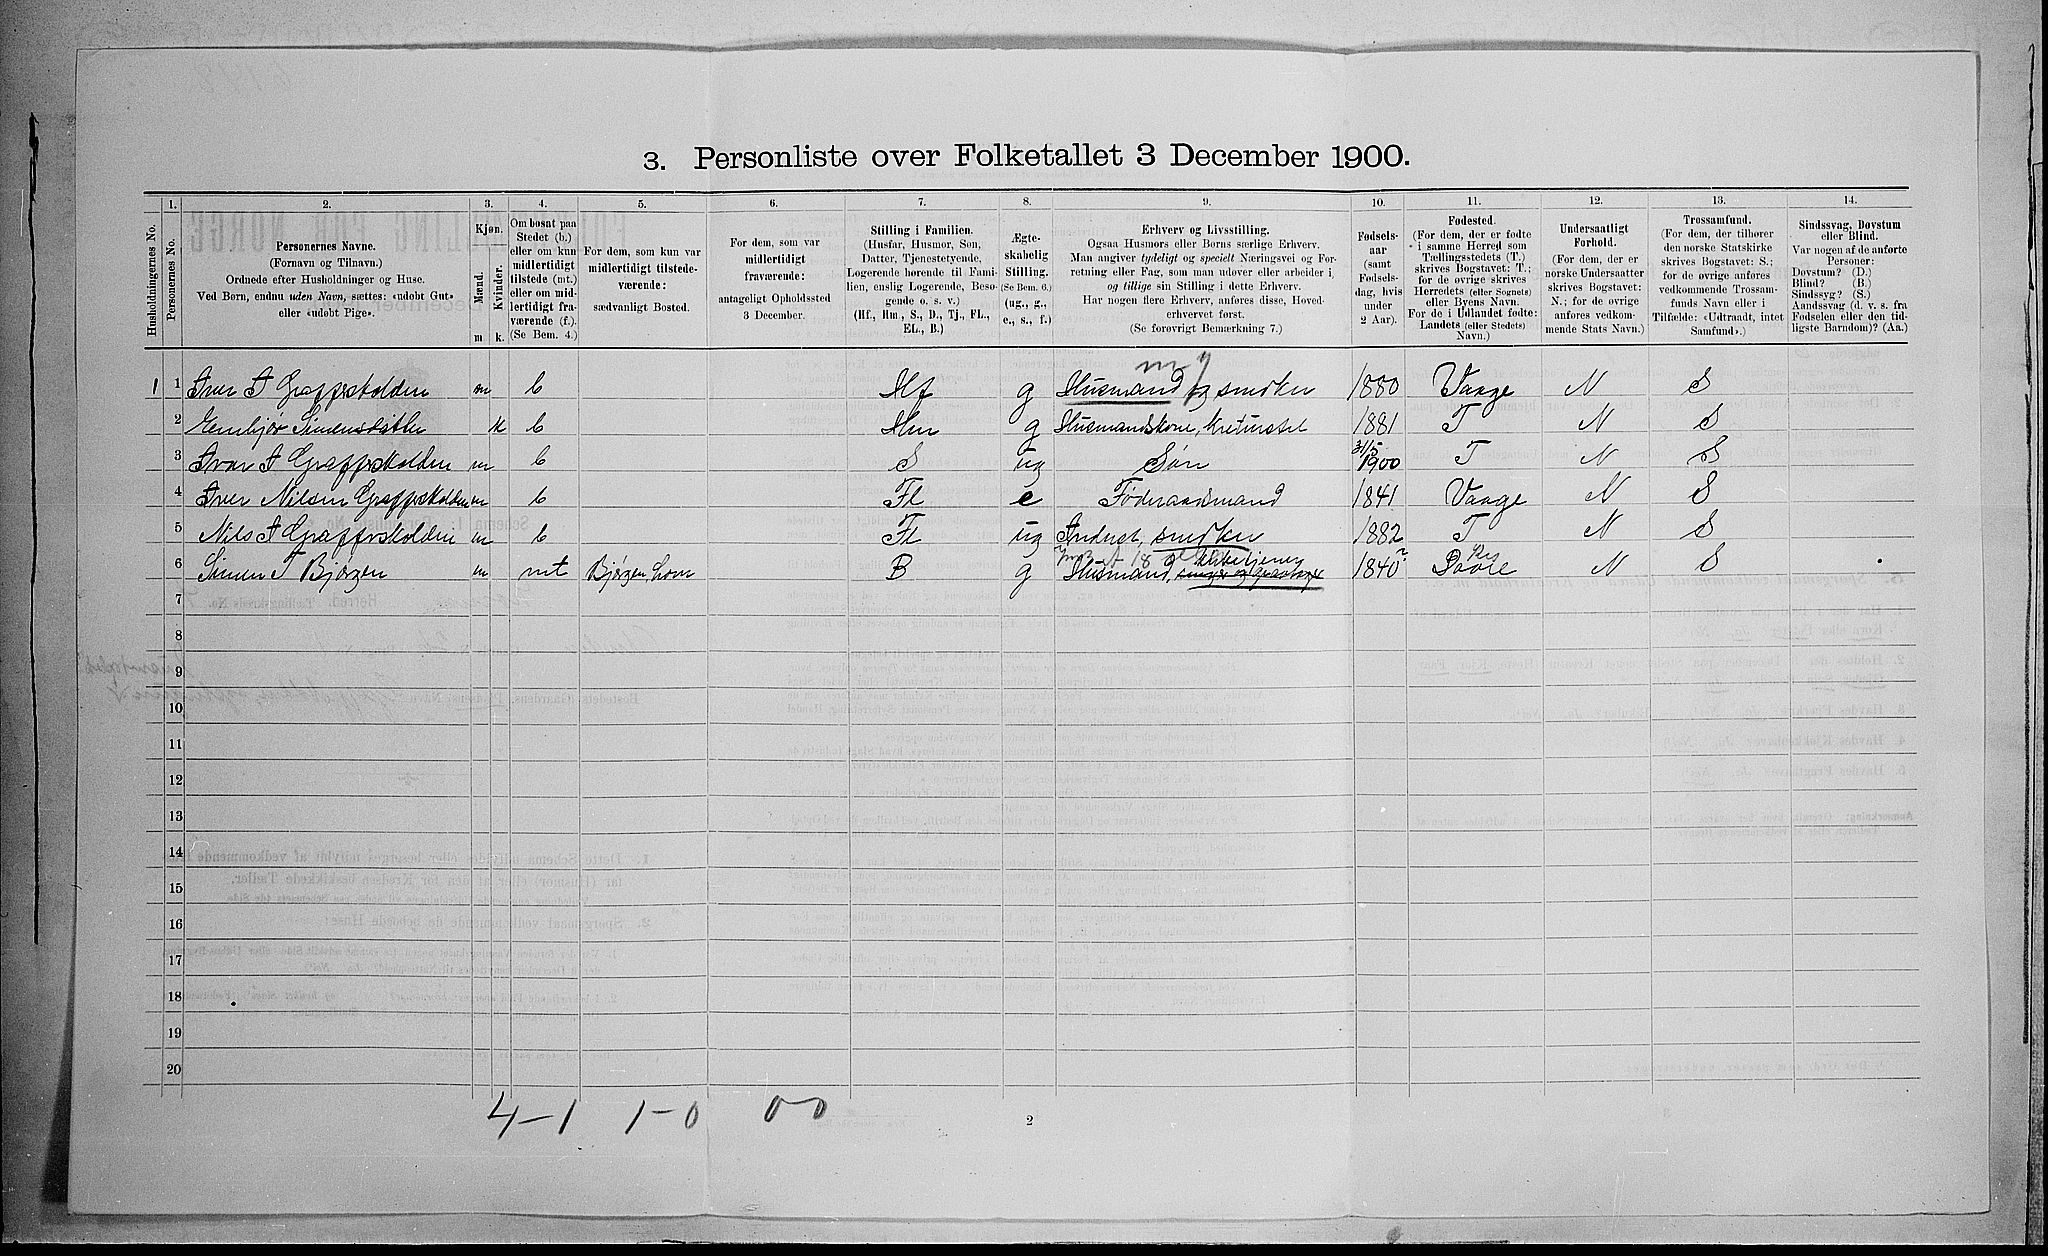 3. Personliste over Folketallet 3 December 1900.
1. 2. 3. 4. 5. 6. 7. 8. 9. 10. 11. 12. 13. 14.
Husholdningernes No.
Personernes No.
Personernes Navne.
(Fornavn og Tilnavn.)
Ordnede efter Husholdninger og Huse.
Ved Børn, endnu uden Navn, sættes: «udøbt Gut»
eller «udøbt Pige».
Kjøn.
Mænd.
Kvinder.
m k.
Om bosat paa
Stedet (b.)
eller om kun
midlertidigt
tilstede (mt.)
eller om mid-
lertidigt fra-
værende (f.).
(Se Bem. 4.)
For dem, som kun var
midlertidigt tilstede-
værende:
sædvanligt Bosted.
For dem, som var
midlertidigt
fraværende:
antageligt Opholdssted
3 December.
Stilling i Familien.
(Husfar, Husmor, Søn,
Datter, Tjenestetyende,
Logerende hørende til Fami-
lien, enslig Logerende, Besø-
gende o. s. v.)
(Hf., Hm., S., D., Tj., FL.,
EL., B.)
Ægte-
skabelig
Stilling.
(Se Bem. 6.)
(ug., g.,
e., s., f.)
Erhverv og Livsstilling.
Ogsaa Husmors eller Børns særlige Erhverv.
Man angiver tydeligt og specielt Næringsvei og For-
retning eller Fag, som man udøver eller arbeider i,
og tillige sin Stilling i dette Erhverv.
Har nogen flere Erhverv, anføres disse, Hoved-
erhvervet først.
(Se forøvrigt Bemærkning 7.)
Fødsels-
aar
(samt
Fødsels-
dag, hvis
under
2 Aar).
Fødested.
(For dem, der er fødte
i samme Herred som
Tællingsstedets (T.)
skrives Bogstavet: T.;
for de øvrige skrives
Herredets (eller Sognets)
eller Byens Navn.
For de i Udlandet fødte:
Landets (eller Stedets)
Navn.)
Undersaatligt
Forhold.
(For dem, der er
norske Undersaatter
skrives Bogstavet:
N.; for de øvrige
anføres vedkom-
mende Stats Navn.)
Trossamfund.
(For dem, der tilhører
den norske Statskirke
skrives Bogstavet: S.;
for de øvrige anføres
vedkommende Trossam-
funds Navn eller i
Tilfælde: «Udtraadt, intet
Samfund».)
Sindssvag, Døvstum
eller Blind.
Var nogen af de anførte
Personer:
Døvstum? (D.)
Blind? (B.)
Sindssyg? (S.)
Aandssvag (d. v. s. fra
Fødselen eller den tid-
ligste Barndom)? (Aa.)
1 1 Iver I Grafferskolden m b Hf g Husmand og snedker 1880 Vaage N S
2 Simensdatter k b Hm g Husmandskone, Kreturstel 1881 T N S
3 Ivar I Grafferskolden m b S ug Søn 31/5 1900 T N S
4 Iver Nilsen Grafferskolden m b Fl e Føderaadsmand 1841 Vaage N S
5 Nils I Grafferskolden m b Fl ug Inderst, snedker 1882 T N S
6 Simen T Bjørgen m mt Bjørgen, Lom B g Husmand, Kirketjener 1840 Dovre N S
7
8
9
10
11
12
13
14
15
16
17
18
19
20
4-1 1-0 0-0
2